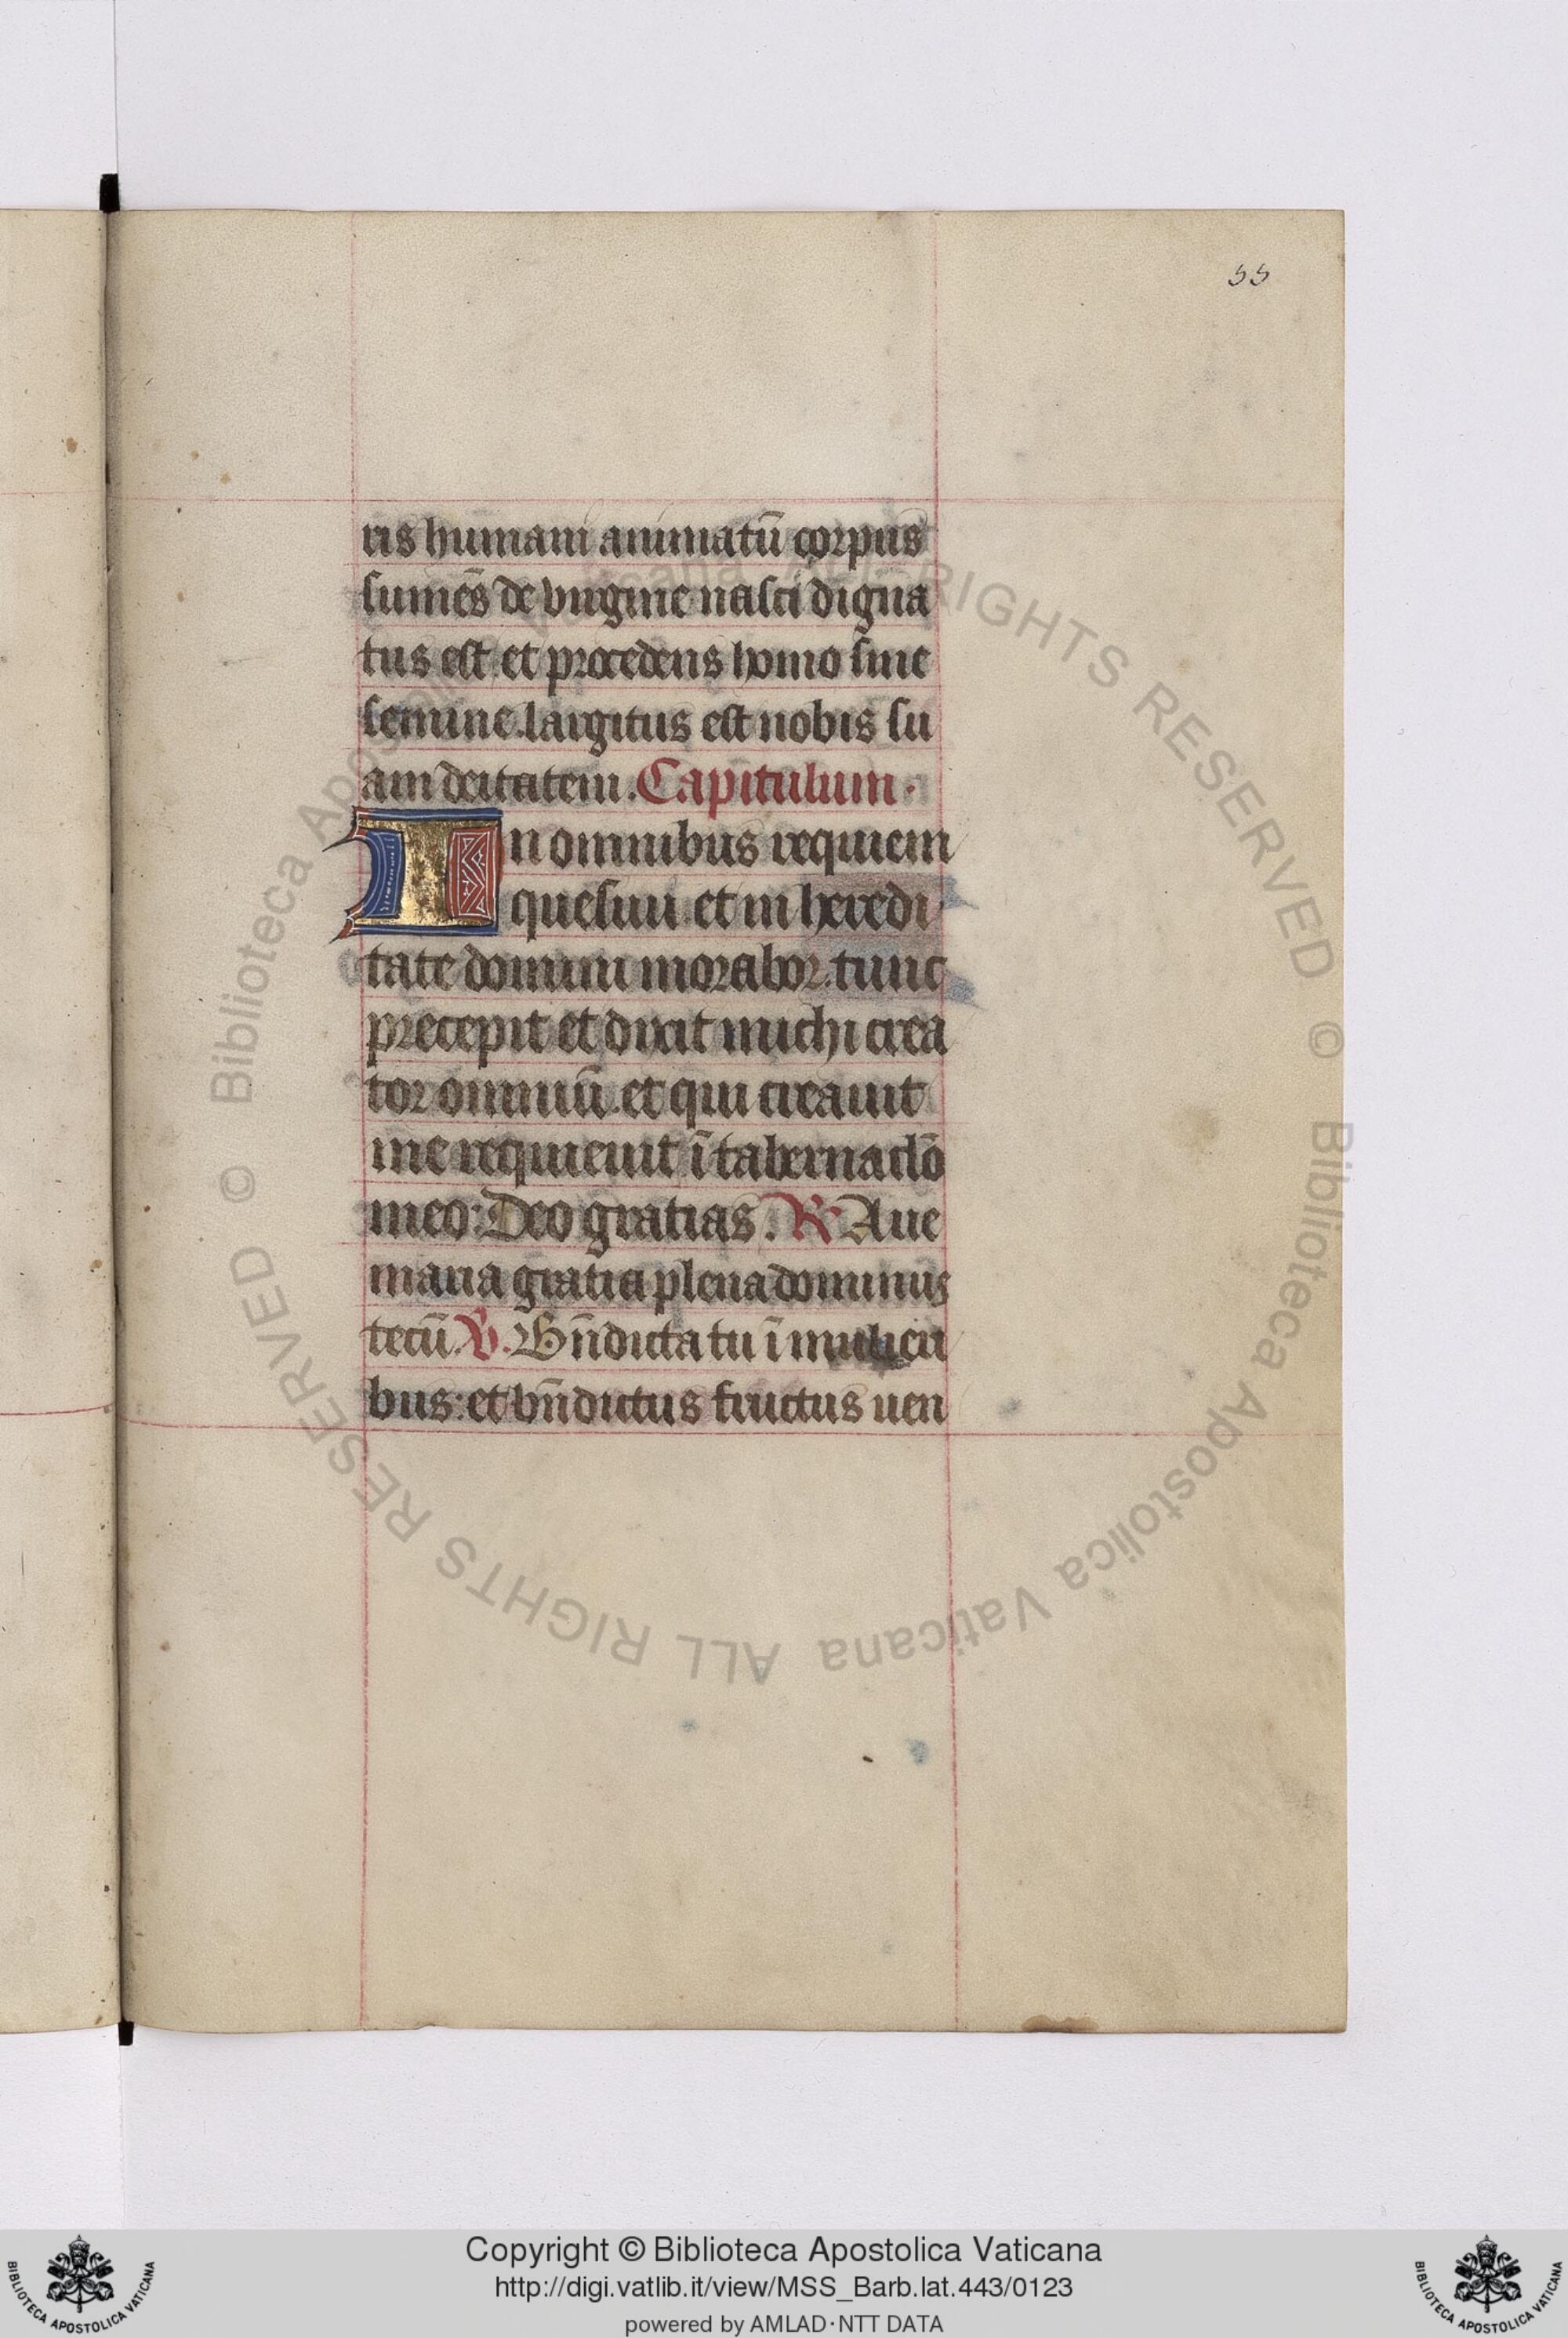 55
ris humani animatū corpus
sumēs de virgine nasci digna
tus est. et procedens homo sine
semine. largitus est nobis su
am deitatem. Capitulum.
In omnibus requiem
quesiui. et in heredi
tate domini morabor. tunc
precepit et dixit michi crea
tor omniū. et qui creauit
me requieuit ī tabernaclō
meo: Deo gratias. R Aue
maria gratia plena dominus
tecū. V. Bn̄dicta tu ī mulieri
bus: et bn̄dictus fructus uen
© Biblioteca Apostolica Vaticana ALL RIGHTS RESERVED © Biblioteca Apostolica Vaticana ALL RIGHTS RESERVED
Copyright © Biblioteca Apostolica Vaticana
http://digi.vatlib.it/view/MSS_Barb.lat.443/0123
powered by AMLAD·NTT DATA
BIBLIOTECA APOSTOLICA VATICANA
BIBLIOTECA APOSTOLICA VATICANA